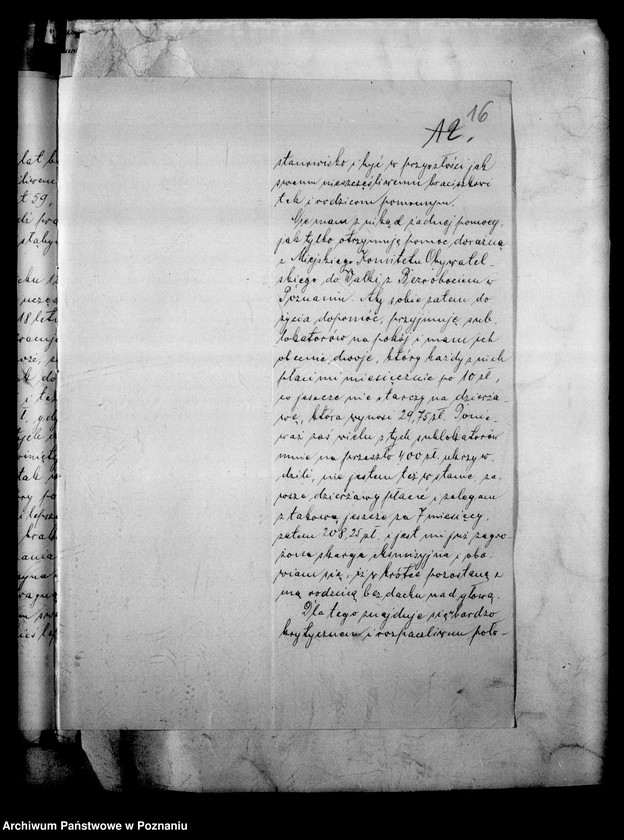 16
A2.
stanowisko i być w przyszłości jak
swemu nieszczęśliwemu braciszkowi
tak i rodzicom pomocnym.
Nie mam z nikąd żadnej pomocy,
jak tylko otrzymuję pomoc doraźną
z Miejskiego Komitetu Obywatel-
skiego do Walki z Bezrobociem w
Poznaniu. Aby sobie zatem do
życia dopomóc, przyjmuję sub-
lokatorów na pokój i mam ich
obecnie dwoje, który każdy z nich
płaci mi miesięcznie po 10 zł,
co jeszcze nie starczy na dzierża-
wę, która wynosi 29,75 zł. Ponie-
waż zaś wielu z tych sublokatorów
mnie na przeszło 400 zł. ukrzyw-
dzili, nie jestem też w stanie, za-
wsze dzierżawy płacić i zalegam
z takową jeszcze za 7 miesięcy,
zatem 208,25 zł. i jest mi już zagro-
żona skarga eksmisyjna i oba-
wiam się, iż w krótce pozostanę z
mą rodziną bez dachu nad głową.
Dlatego znajduję się w bardzo
krytycznem i rozpaczliwem poło-
Archiwum Państwowe w Poznaniu